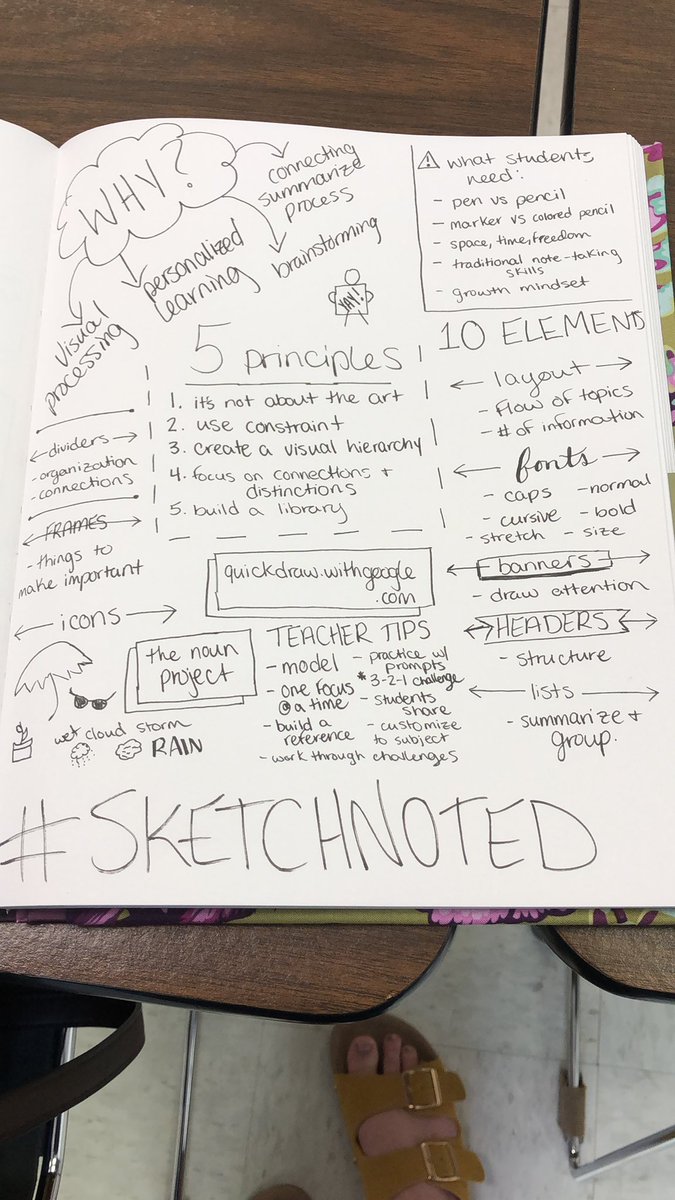 WHY?
connecting
summarize
process
brainstorming
personalized
learning
visual
processing
⚠ what students
need:
- pen vs pencil
- marker vs colored pencil
- space, time, freedom
- traditional note-taking
skills
- growth mindset
YAY!
5 principles
1. it's not about the art
2. use constraint
3. create a visual hierarchy
4. focus on connections +
distinctions
5. build a library
dividers
- organization
- connections
FRAMES
- things to
make important
icons
the noun
project
wet cloud storm
RAIN
quickdraw.withgoogle
.com
TEACHER TIPS
- model
- one focus
@ a time
- build a
reference
- work through challenges
- practice w/
prompts
* 3-2-1 challenge
- students
share
- customize
to subject
10 ELEMENTS
layout
- flow of topics
- # of information
fonts
- caps - normal
- cursive - bold
- stretch - size
banners
- draw attention
HEADERS
- structure
lists
- summarize +
group.
#SKETCHNOTED